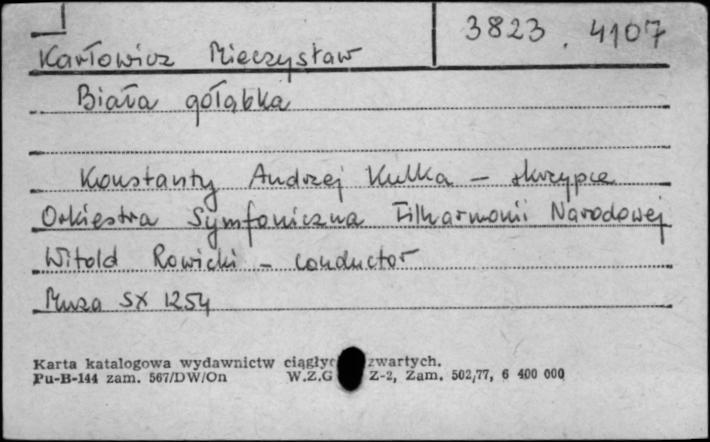 3823. 4107
Karłowicz Mieczysław
Biała gołąbka
Konstanty Andrzej Kulka – skrzypce
Orkiestra Symfoniczna Filharmonii Narodowej
Witold Rowicki – conductor
Muza SX 1254
Karta katalogowa wydawnictw ciągłyc zwartych.
Pu-B-144 zam. 567/DW/On W.Z.G Z-2, Zam. 502/77, 6 400 000